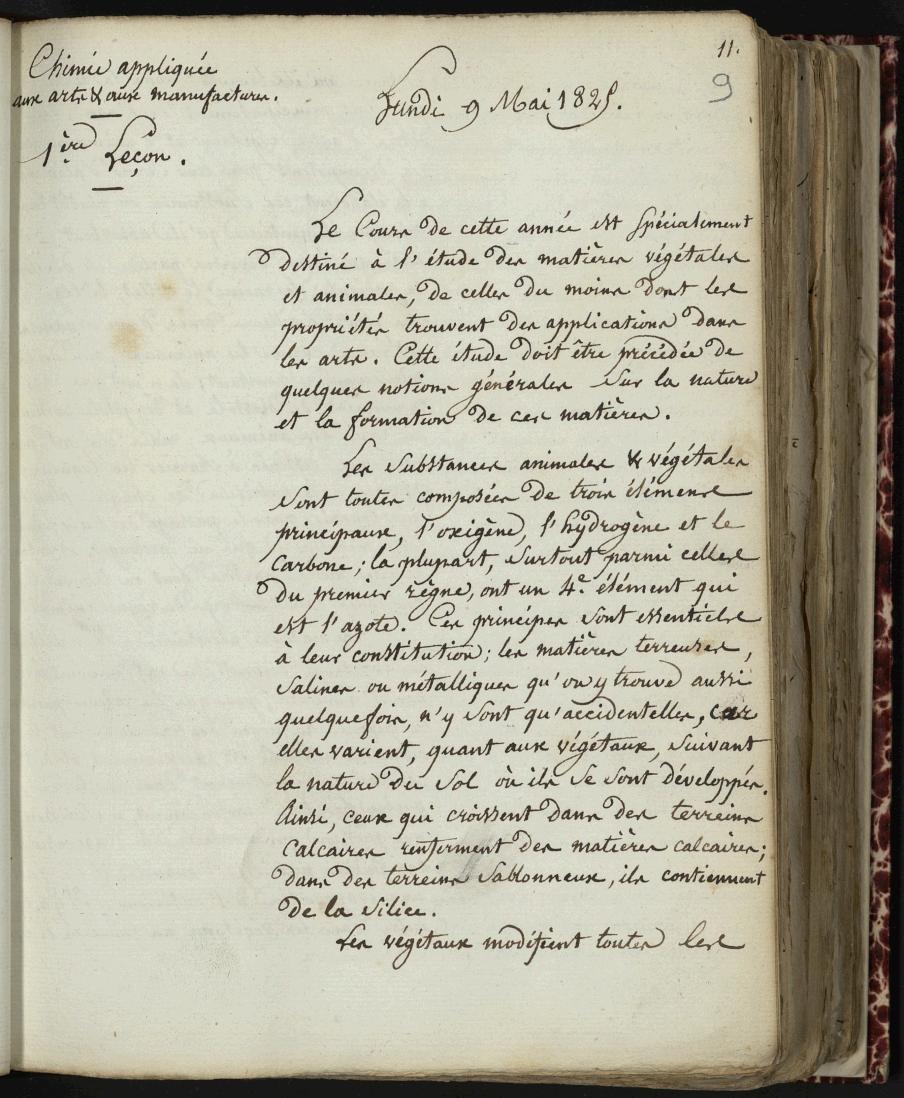 11.
9
Chimie appliquée
aux arts & aux manufactures.
1ère Leçon.
Lundi 9 Mai 1825.
Le Cours de cette année est spécialement
destiné à l'étude des matières végétales
et animales, de celles du moins dont les
propriétés trouvent des applications dans
les arts. Cette étude doit être précédée de
quelques notions générales sur la nature
et la formation de ces matières.
Les substances animales & végétales
sont toutes composées de trois élémens
principaux, l'oxigène, l'hydrogène et le
carbone; la plupart, surtout parmi celles
du premier règne, ont un 4e. élément qui
est l'azote. Ces principes sont essentiels
à leur constitution; les matières terreuses,
salines ou métalliques qu'on y trouve aussi
quelquefois, n'y sont qu'accidentelles, car
elles varient, quant aux végétaux, suivant
la nature du sol où ils se sont développés.
Ainsi, ceux qui croissent dans des terreins
calcaires renferment des matières calcaires;
dans des terreins sablonneux, ils contiennent
de la silice.
Les végétaux modifient toutes les